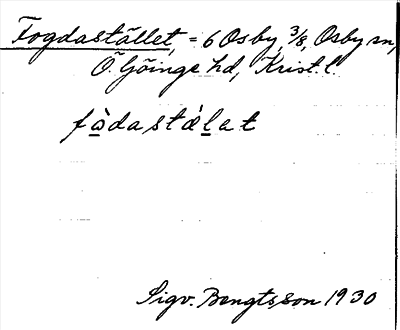 Fogdastället, = 6 Osby, 3/8, Osby sn,
Ö. Göinge hd, Krist. l.
fòdastǽlat
Sigv. Bengtsson 1930